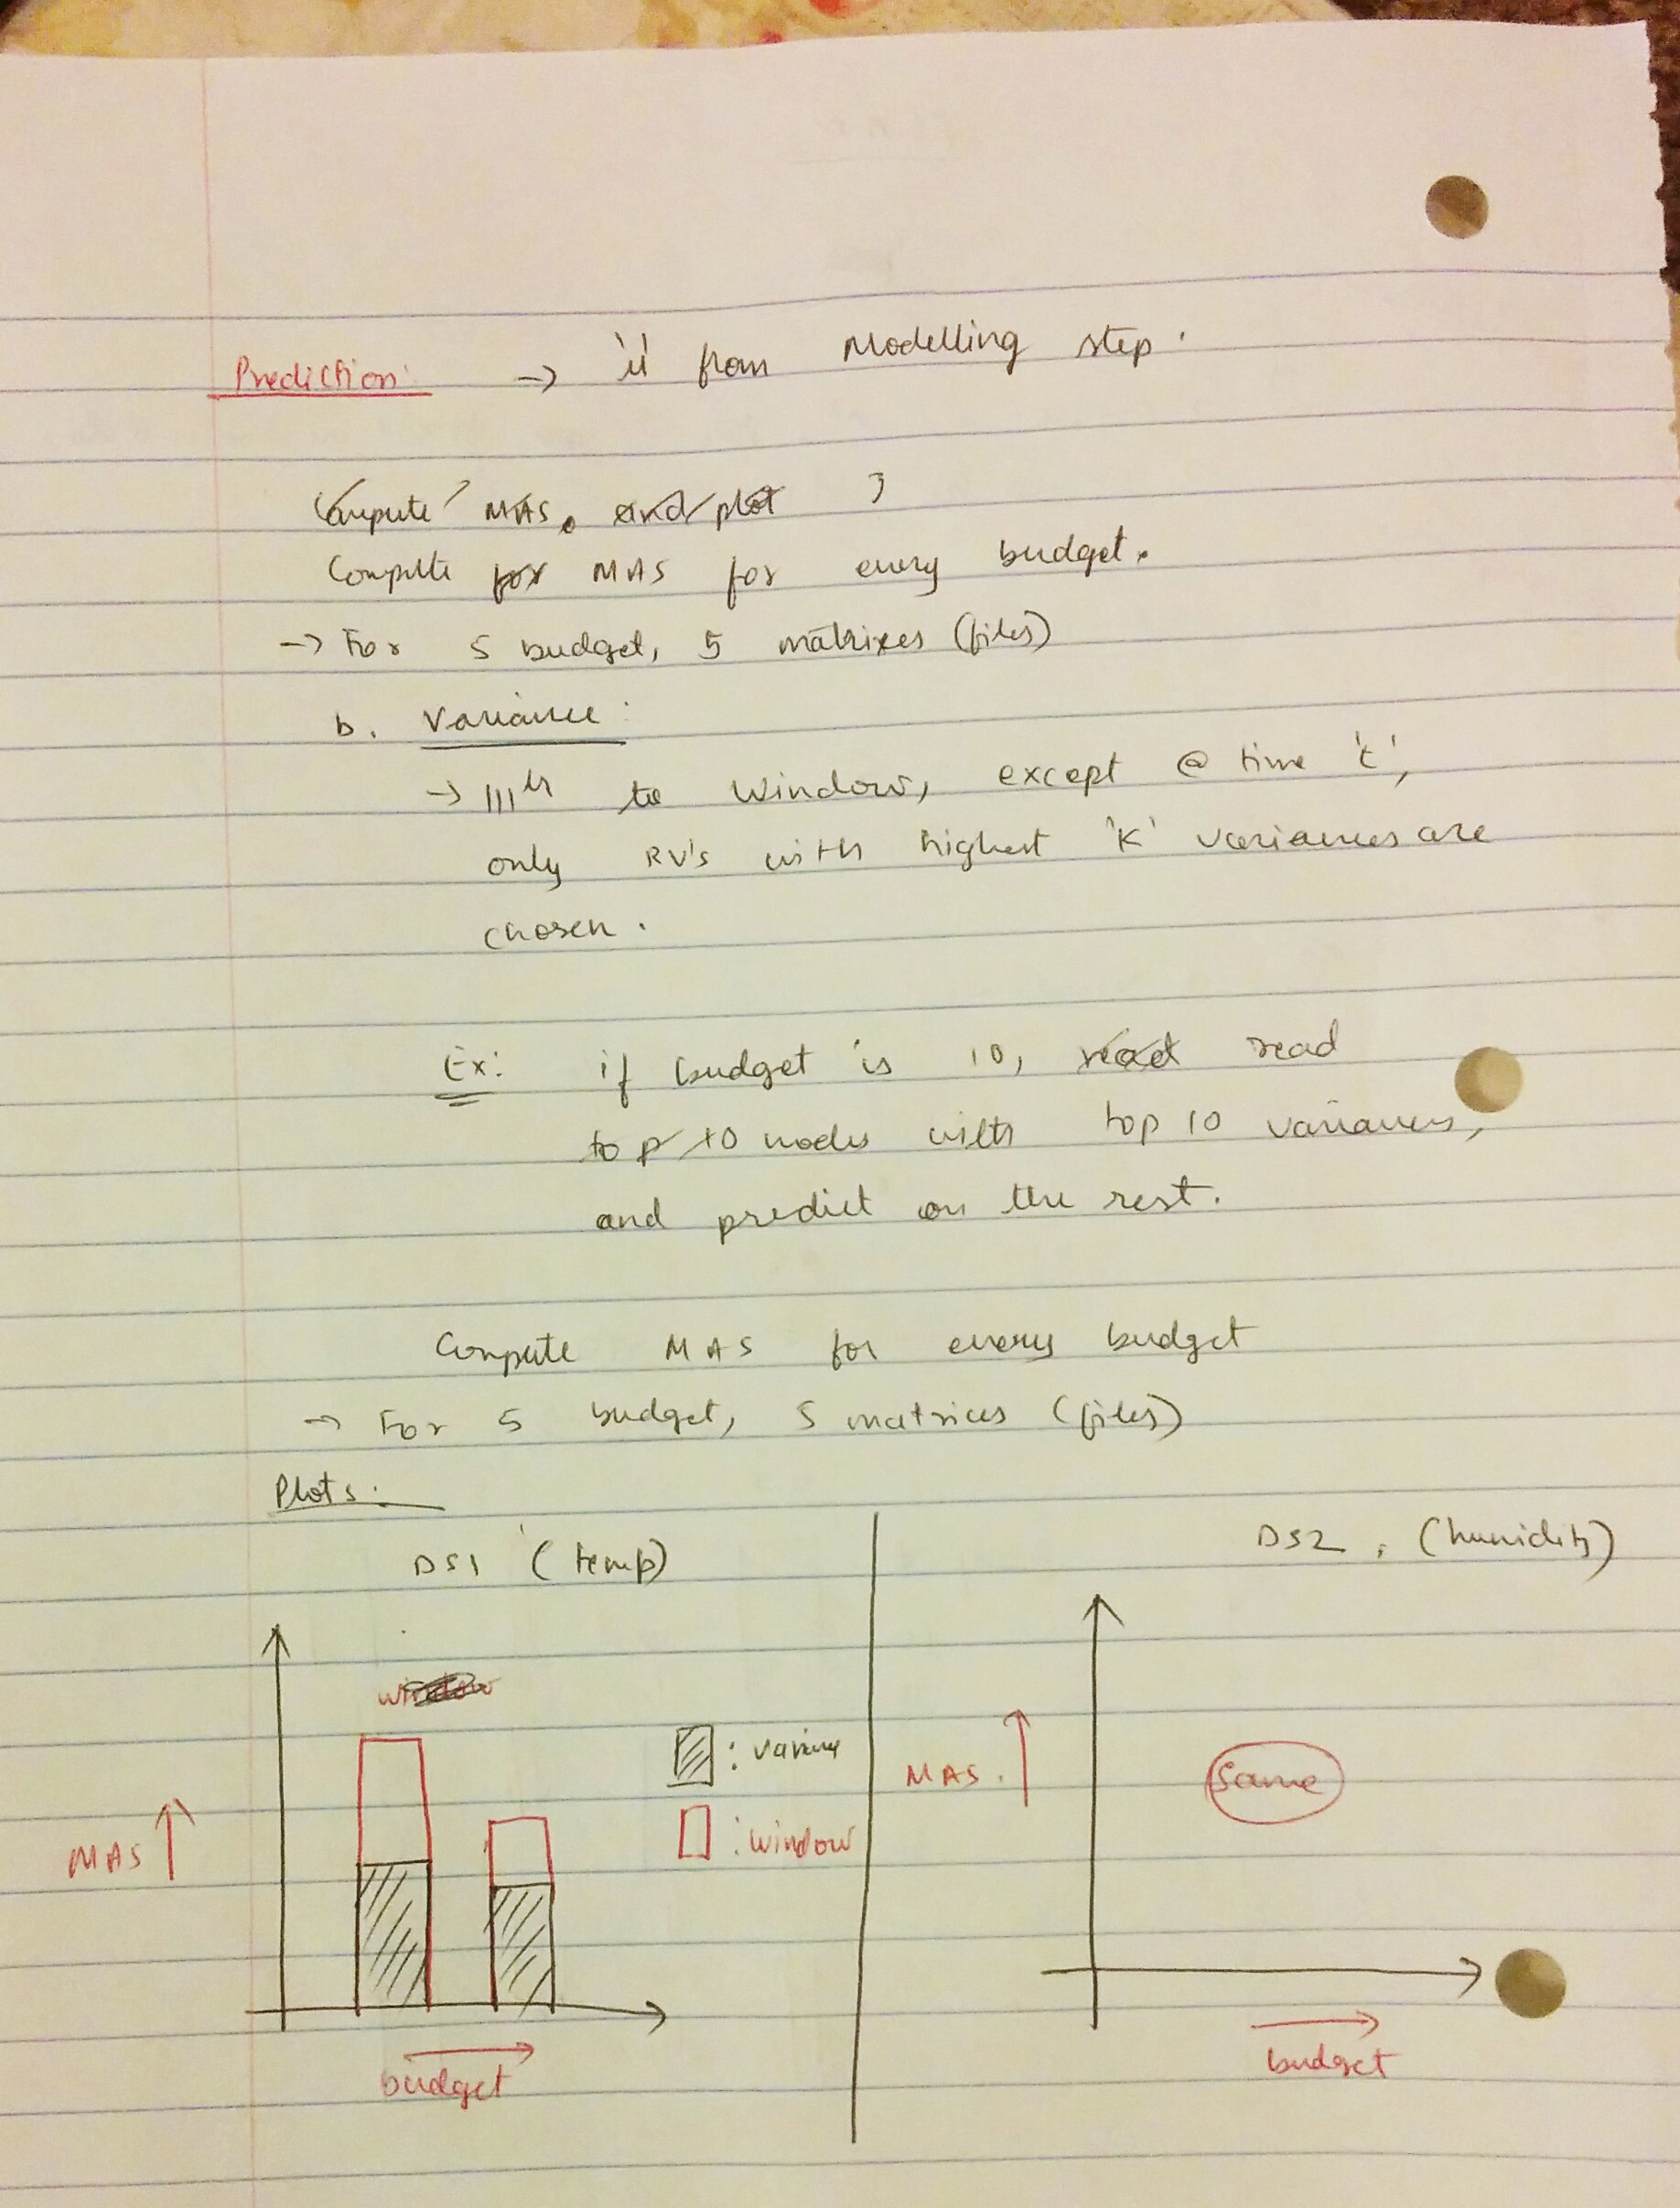 Prediction: → 'u' from Modelling step.
Compute MAS. and plot
Compute for MAS for every budget.
→ For 5 budget, 5 matrixes (files)
b. Variance:
→ |||ly to Window, except @ time 't',
only RV's with highest 'K' variances are
chosen.
Ex: if budget is 10, read read
top 10 nodes with top 10 variances,
and predict on the rest.
Compute MAS for every budget
→ For 5 budget, 5 matrices (files)
Plots:
DS1 (temp)
DS2 (humidity)
window
: variance
: window
MAS
budget
MAS.
Same
budget